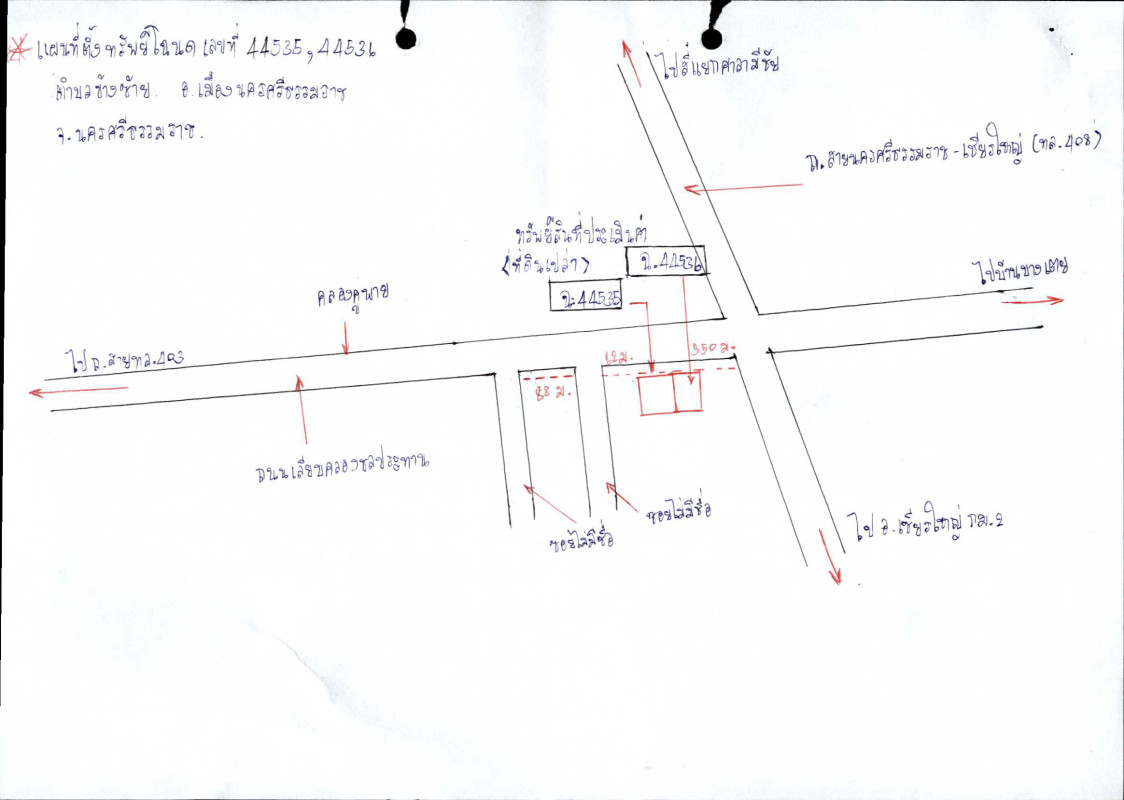 แผนที่ตั้งทรัพย์โฉนด เลขที่ 44535, 44536
ตำบลช้างซ้าย อ.เมืองนครศรีธรรมราช
จ.นครศรีธรรมราช.
ไปสี่แยกศาลามีชัย
ถ.สายนครศรีธรรมราช - เชียรใหญ่ (ทล.408)
ทรัพย์สินที่ประเมินค่า
(ที่ดินเปล่า)
ฉ.44536
ฉ.44535
ไปบ้านบางเตย
คลองคูพาย
ไป ถ.สายทล.403
12 ม.
350 ม.
88 ม.
ถนนเลียบคลองชลประทาน
ซอยไม่มีชื่อ
ซอยไม่มีชื่อ
ไป อ.เชียรใหญ่ กม.2